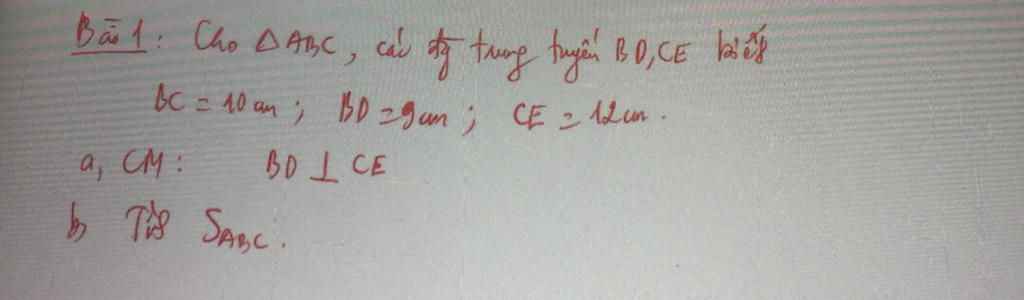 Bài 1: Cho △ABC, các đg trung tuyến BD, CE biết
BC = 10 cm; BD = 9 cm; CE = 12 cm.
a, CM: BD ⊥ CE
b, Tính S_ABC.